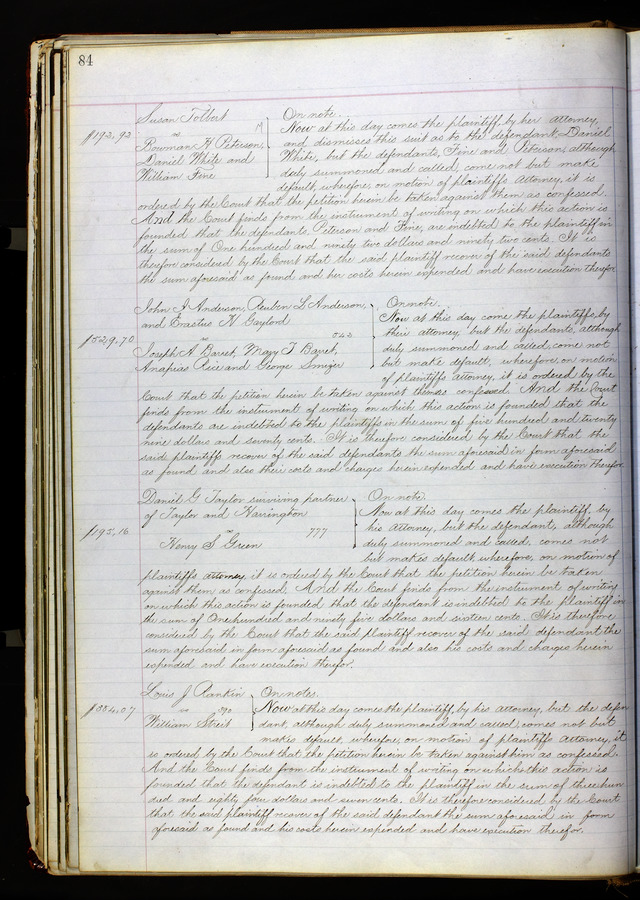 84
Susan Tolbert
On note.
$192.92
vs 17
Now at this day comes the plaintiff, by her attorney,
Bowman H Peterson,
and dismisses this suit as to the defendant, Daniel
Daniel White and
White, but the defendants, Fine and Peterson, although
William Fine
duly summoned and called, come not but make
default, wherefore, on motion of plaintiffs attorney, it is
ordered by the Court that the petition herein be taken against them as confessed.
And the Court finds from the instrument of writing on which this action is
founded that the defendants, Peterson and Fine, are indebted to the plaintiff in
the sum of One hundred and ninety two dollars and ninety two cents. It is
therefore considered by the Court that the said plaintiff recover of the said defendants
the sum aforesaid as found and her costs herein expended and have execution therefor
John J Anderson, Reuben L Anderson,
On note.
and Erastus H. Gaylord
Now at this day come the plaintiffs, by
$529.70
vs 543
their attorney, but the defendants, although
Joseph A Barret, Mary T. Barret,
duly summoned and called, come not
Anapias Rice and George Smizer
but make default, wherefore, on motion
of plaintiffs attorney, it is ordered by the
Court that the petition herein be taken against them as confessed. And the Court
finds from the instrument of writing on which this action is founded that the
defendants are indebted to the plaintiffs in the sum of five hundred and twenty
nine dollars and seventy cents. It is therefore considered by the Court that the
said plaintiffs recover of the said defendants the sum aforesaid in form aforesaid
as found and also their costs and charges herein expended and have execution therefor
Daniel G Taylor surviving partner
On note.
of Taylor and Harrington
Now at this day comes the plaintiff, by
$195.16
vs 777
his attorney, but the defendant, although
Henry S Green
duly summoned and called, comes not
but makes default, wherefore, on motion of
plaintiffs attorney, it is ordered by the Court that the petition herein be taken
against them as confessed. And the Court finds from the instrument of writing
on which this action is founded that the defendant is indebted to the plaintiff in
the sum of One hundred and ninety five dollars and sixteen cents. It is therefore
considered by the Court that the said plaintiff recover of the said defendant the
sum aforesaid in form aforesaid as found and also his costs and charges herein
expended and have execution therefor.
Louis J. Rankin
On notes.
$384.07
vs 390
Now at this day comes the plaintiff, by his attorney, but the defen
William Streit
dant, although duly summoned and called, comes not but
makes default, wherefore, on motion of plaintiffs attorney, it
is ordered by the Court that the petition herein be taken against him as confessed.
And the Court finds from the instrument of writing on which this action is
founded that the defendant is indebted to the plaintiff in the sum of three hun
dred and eighty four dollars and seven cents. It is therefore considered by the Court
that the said plaintiff recover of the said defendant the sum aforesaid in form
aforesaid as found and his costs herein expended and have execution therefor.